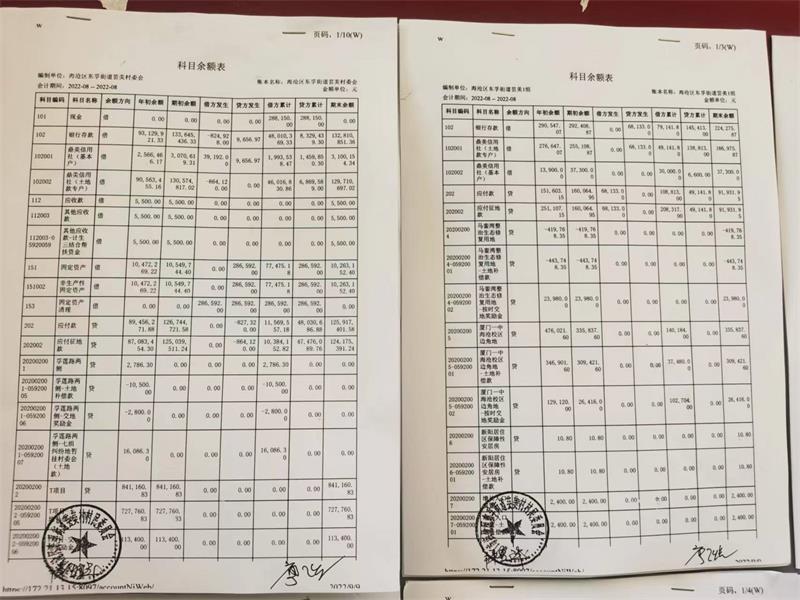 W
页码，1/10(W)
科目余额表
编制单位：海沧区东孚街道芸美村委会
账本名称：海沧区东孚街道芸美村委会
会计期间：2022-08--2022-08
金额单位：元
科目编码 科目名称 余额方向 年初余额 期初余额 借方发生 贷方发生 借方累计 贷方累计 期末余额
101 现金 借 0.00 0.00 0.00 0.00 288,150.00 288,150.00 0.00
102 银行存款 借 93,129,921.33 133,645,436.33 -824,928.00 9,656.97 48,010,369.33 8,329,439.30 132,810,851.36
102001 鼎美信用社（基本户） 借 2,566,466.17 3,070,619.31 39,192.00 9,656.97 1,993,538.47 1,459,850.30 3,100,154.34
102002 鼎美信用社（土地款专户） 借 90,563,455.16 130,574,817.02 -864,120.00 0.00 46,016,830.86 6,869,589.00 129,710,697.02
112 应收款 借 5,500.00 5,500.00 0.00 0.00 0.00 0.00 5,500.00
112003 其他应收款 借 5,500.00 5,500.00 0.00 0.00 0.00 0.00 5,500.00
112003-05920059 其他应收款-计生三结合帮扶资金 借 5,500.00 5,500.00 0.00 0.00 0.00 0.00 5,500.00
151 固定资产 借 10,472,269.22 10,549,744.40 0.00 286,592.00 77,475.18 286,592.00 10,263,152.40
151002 非生产性固定资产 借 10,472,269.22 10,549,744.40 0.00 286,592.00 77,475.18 286,592.00 10,263,152.40
153 固定资产清理 借 0.00 0.00 286,592.00 286,592.00 286,592.00 286,592.00 0.00
202 应付款 贷 89,456,271.88 126,744,721.58 0.00 -827,320.00 11,569,557.18 48,030,686.88 125,917,401.58
202002 应付征地款 贷 87,083,454.30 125,039,511.24 0.00 -864,120.00 10,384,552.82 67,476,089.76 124,175,391.24
202002001 孚莲路两侧 贷 2,786.30 0.00 0.00 0.00 2,786.30 0.00 0.00
202002001-05920005 孚莲路两侧-土地补偿款 贷 -10,500.00 0.00 0.00 0.00 -10,500.00 0.00 0.00
202002001-05920006 孚莲路两侧-交地奖励金 贷 -2,800.00 0.00 0.00 0.00 -2,800.00 0.00 0.00
202002001-05920007 孚莲路两侧-七组纠纷地暂挂村委会（土地款） 贷 16,086.30 0.00 0.00 0.00 16,086.30 0.00 0.00
202002002 T项目 贷 841,160.83 841,160.83 0.00 0.00 0.00 0.00 841,160.83
727,760.83 727,760.83 0.00 0.00 0.00 0.00 727,760.83
113,400.00 113,400.00 0.00 0.00 0.00 0.00 113,400.00
2022/9/9
W
页码，1/3(W)
科目余额表
编制单位：海沧区东孚街道芸美1组
账本名称：海沧区东孚街道芸美1组
会计期间：2022-08--2022-08
金额单位：元
科目编码 科目名称 余额方向 年初余额 期初余额 借方发生 贷方发生 借方累计 贷方累计 期末余额
102 银行存款 借 290,547.07 292,408.87 0.00 68,133.00 79,141.80 145,413.00 224,275.87
102001 鼎美信用社（土地款专户） 借 276,647.07 255,108.87 0.00 68,133.00 49,141.80 138,813.00 186,975.87
102002 鼎美信用社（基本户） 借 13,900.00 37,300.00 0.00 0.00 30,000.00 6,600.00 37,300.00
202 应付款 贷 151,603.15 160,064.95 68,133.00 0.00 108,813.00 49,141.80 91,931.95
202002 应付征地款 贷 251,107.15 160,064.95 68,133.00 0.00 208,317.00 49,141.80 91,931.95
202002004 马銮湾整治生态修复用地 贷 -419,768.35 -419,768.35 0.00 0.00 0.00 0.00 -419,768.35
202002004-05920001 马銮湾整治生态修复用地-土地补偿款 贷 -443,748.35 -443,748.35 0.00 0.00 0.00 0.00 -443,748.35
202002004-05920002 马銮湾整治生态修复用地-按时交地奖励金 贷 23,980.00 23,980.00 0.00 0.00 0.00 0.00 23,980.00
202002005 厦门一中海沧校区边角地 贷 476,021.60 335,837.60 0.00 0.00 140,184.00 0.00 335,837.60
202002005-05920001 厦门一中海沧校区边角地-土地补偿款 贷 346,901.60 309,421.60 0.00 0.00 37,480.00 0.00 309,421.60
202002005-05920002 厦门一中海沧校区边角地-按时交地奖励金 贷 129,120.00 26,416.00 0.00 0.00 102,704.00 0.00 26,416.00
202002006 新阳居住区保障性安居房 贷 10.80 10.80 0.00 0.00 0.00 0.00 10.80
202002006-05920001 新阳居住区保障性安居房-土地补偿款 贷 10.80 10.80 0.00 0.00 0.00 0.00 10.80
202002007 贷 2,400.00 2,400.00 0.00 0.00 0.00 0.00 2,400.00
202002007-05920001 2,400.00 2,400.00 0.00 0.00 0.00 0.00 2,400.00
1/4(W)